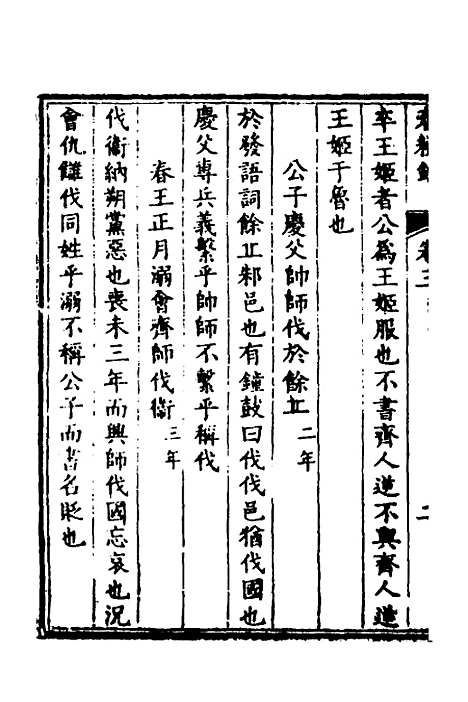 卒王姬者公為王姬服也不書齊人逆不與齊人逆
王姬于魯也
公子慶父帥師伐於餘丘 二年
於發語詞餘丘邾邑也有鐘鼓曰伐伐邑猶伐國也
慶父専兵義繫乎帥師不繫乎稱伐
春王正月溺會齊師伐衞 三年
伐衞納朔黨惡也喪未三年而興師伐國忘哀也況
會仇讎伐同姓乎溺不稱公子而書名貶也
卷三
二